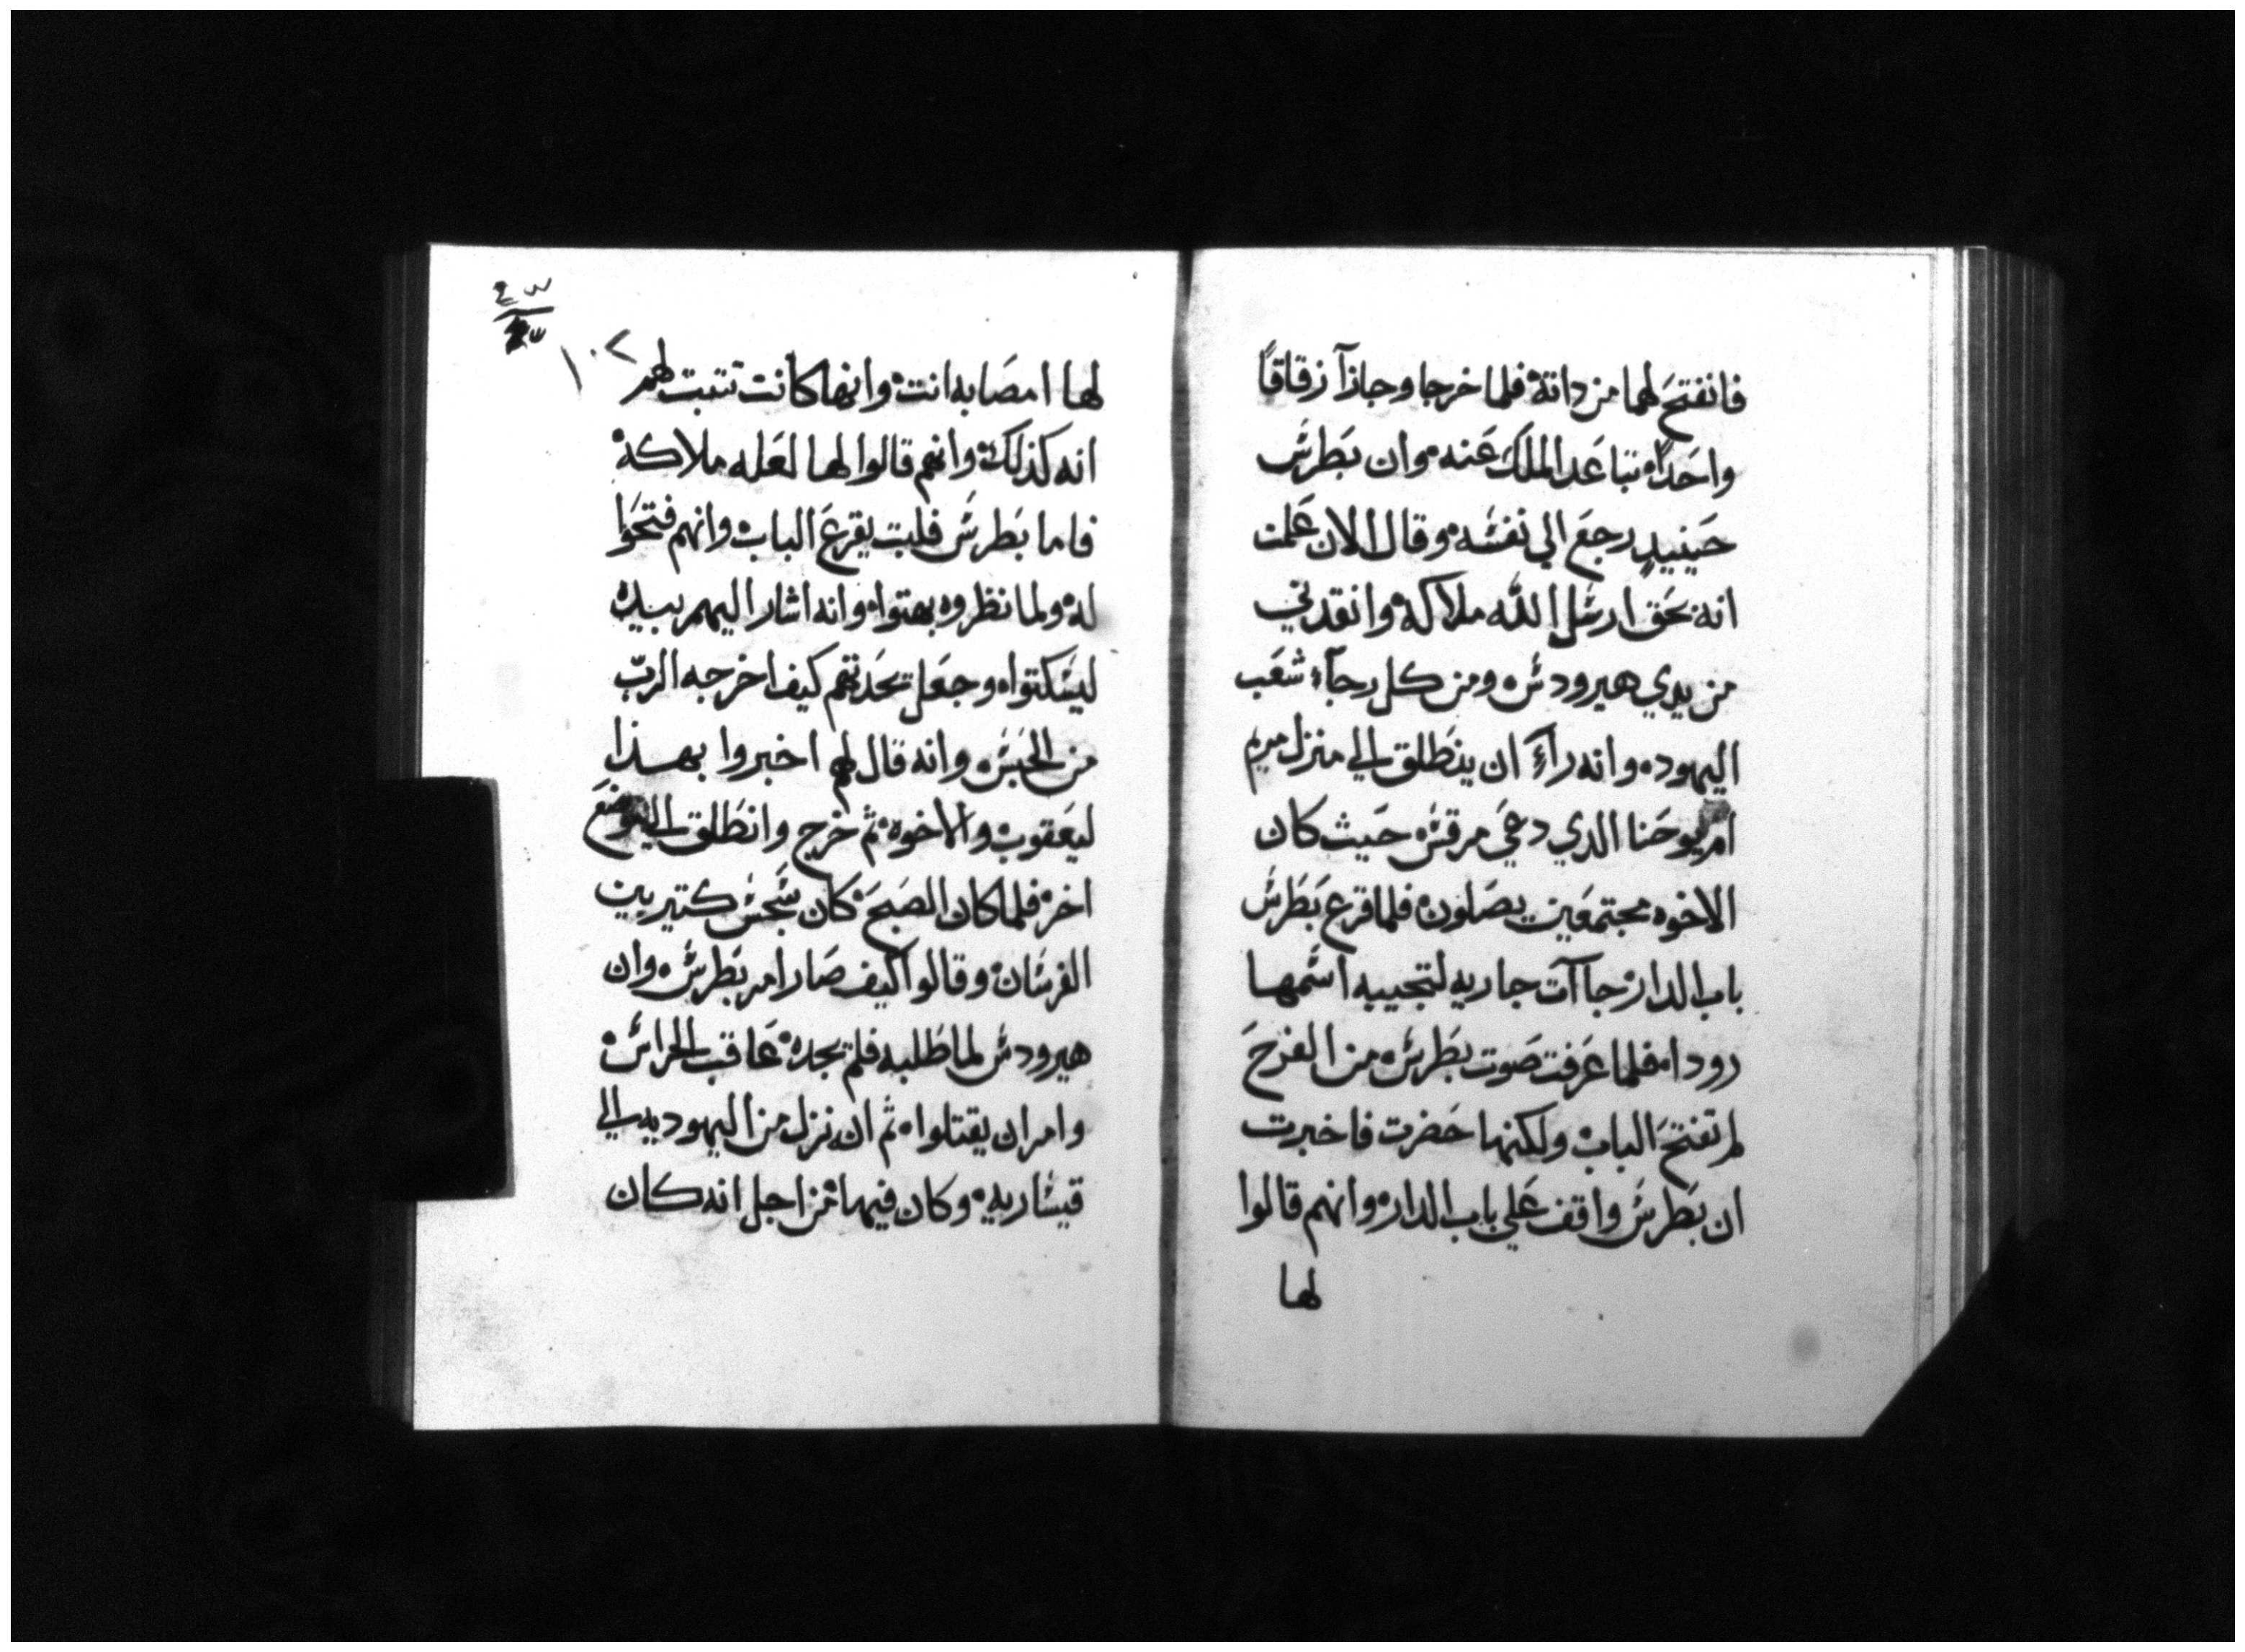 فانفتح لهما من داتة فلما خرجا وجازآ زقاقاً
واحَداً تباعَد الملَك عَنه وان بَطرسَ
حَينيدٍ رجعَ الي نفسَه وقال الان عَلمت
انه بحَق ارسَل الله ملاكه وانقدني
من يدي هيرودسَ ومن كل رجآء شعَب
اليهود وانه رآءَ ان ينطَلق الي منزل مريم
ام يوحَنا الدي دعَي مرقسَ حَيث كان
الاخوه مجتمعَين يصَلون فلما قرع بَطَرسَ
باب الدار جاآت جاريه لتجيبه اسَمها
رودا فلما عَرَفت صَوت بطَرسَ من الفرحَ
لم تفتحَ الباب ولكنها حَضرت فاخبرت
ان بَطَرسَ واقف عَلي باب الدار وانهم قالوا
لها
١٠٢
لها امصَابه انت وانها كانت تتبت لهم
انه كذلك وانهم قالوا لها لعَله ملاكه
فاما بَطرسَ فلبت يقرعَ الباب وانهم فتحَوا
له ولما نظروه بهتوا وانه اشار اليهم بيده
ليسَكتوا وجعَل يحَدتهم كيف اخرجه الربّ
من الحَبَسَ وانه قال لهم اخبروا بهذا
ليعَقوب والاخوه ثم خرج وانطَلق الي موضعَ
اخر فلما كان الصَبحَ كان سَجَسَ كتير بين
الفرسَان وقالوا كيف صَار امر بَطرسَ وان
هيرودسَ لما طَلبه فلم يجده عَاقب الحراسَ
وامر ان يقتلوا ثم انه نزل من اليهوديه الي
قيسَاريه وكان فيها من اجل انه كان